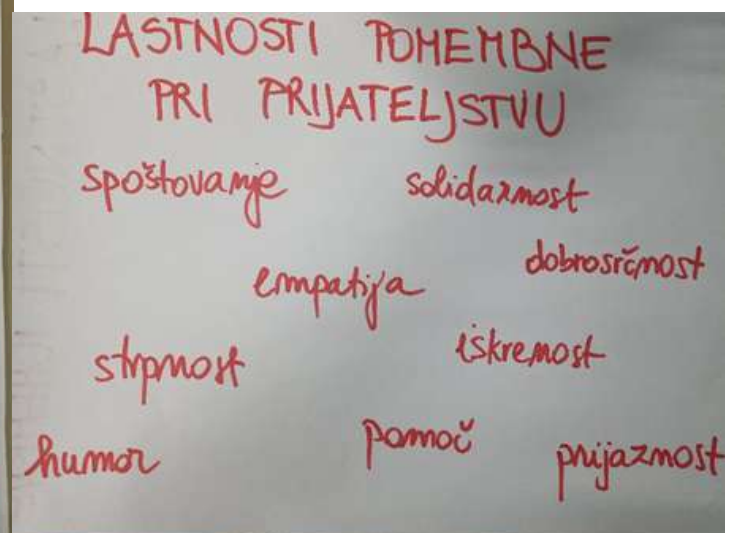 LASTNOSTI POMEMBNE
PRI PRIJATELJSTVU
spoštovanje solidarnost
dobrosrčnost
empatija
strpnost iskrenost
humor pomoč prijaznost